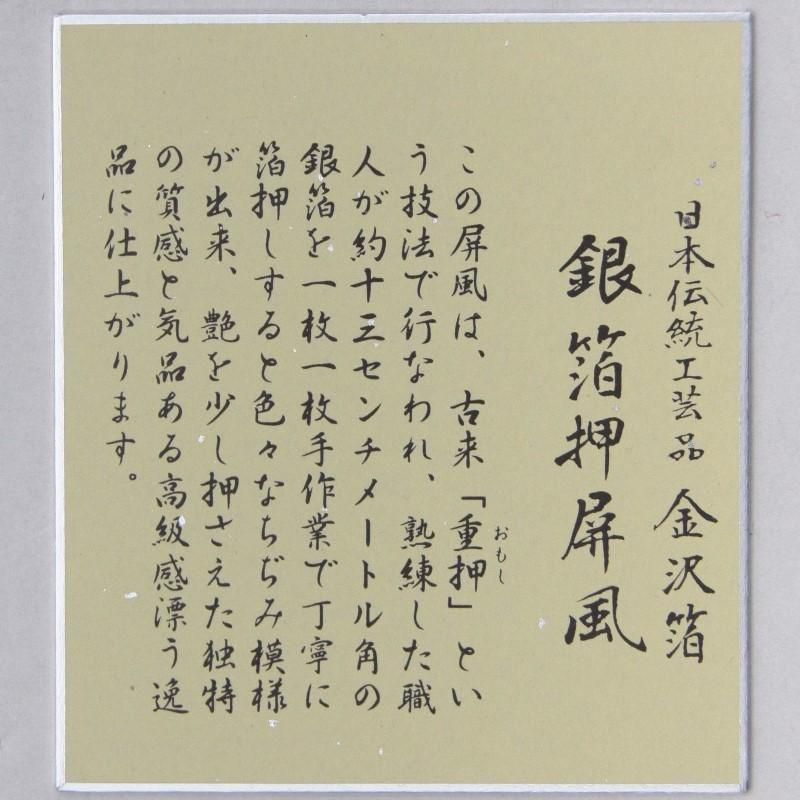 日本伝統工芸品 金沢箔
銀箔押屏風
この屏風は、古来「重押」とい
おもし
う技法で行なわれ、熟練した職
人が約十三センチメートル角の
銀箔を一枚一枚手作業で丁寧に
箔押しすると色々なちぢみ模様
が出来、艶を少し押さえた独特
の質感と気品ある高級感漂う逸
品に仕上がります。